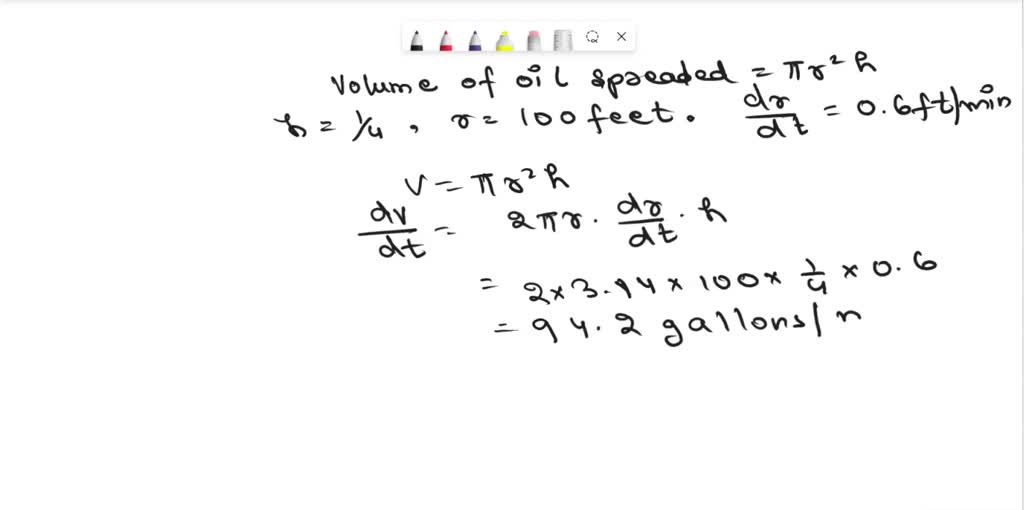 Volume of oil spreaded = πr²h
h = 1/4 , r = 100 feet. dr/dt = 0.6ft/min
V = πr²h
dv/dt = 2πr · dr/dt · h
= 2×3.14×100×1/4×0.6
= 94.2 gallons/n